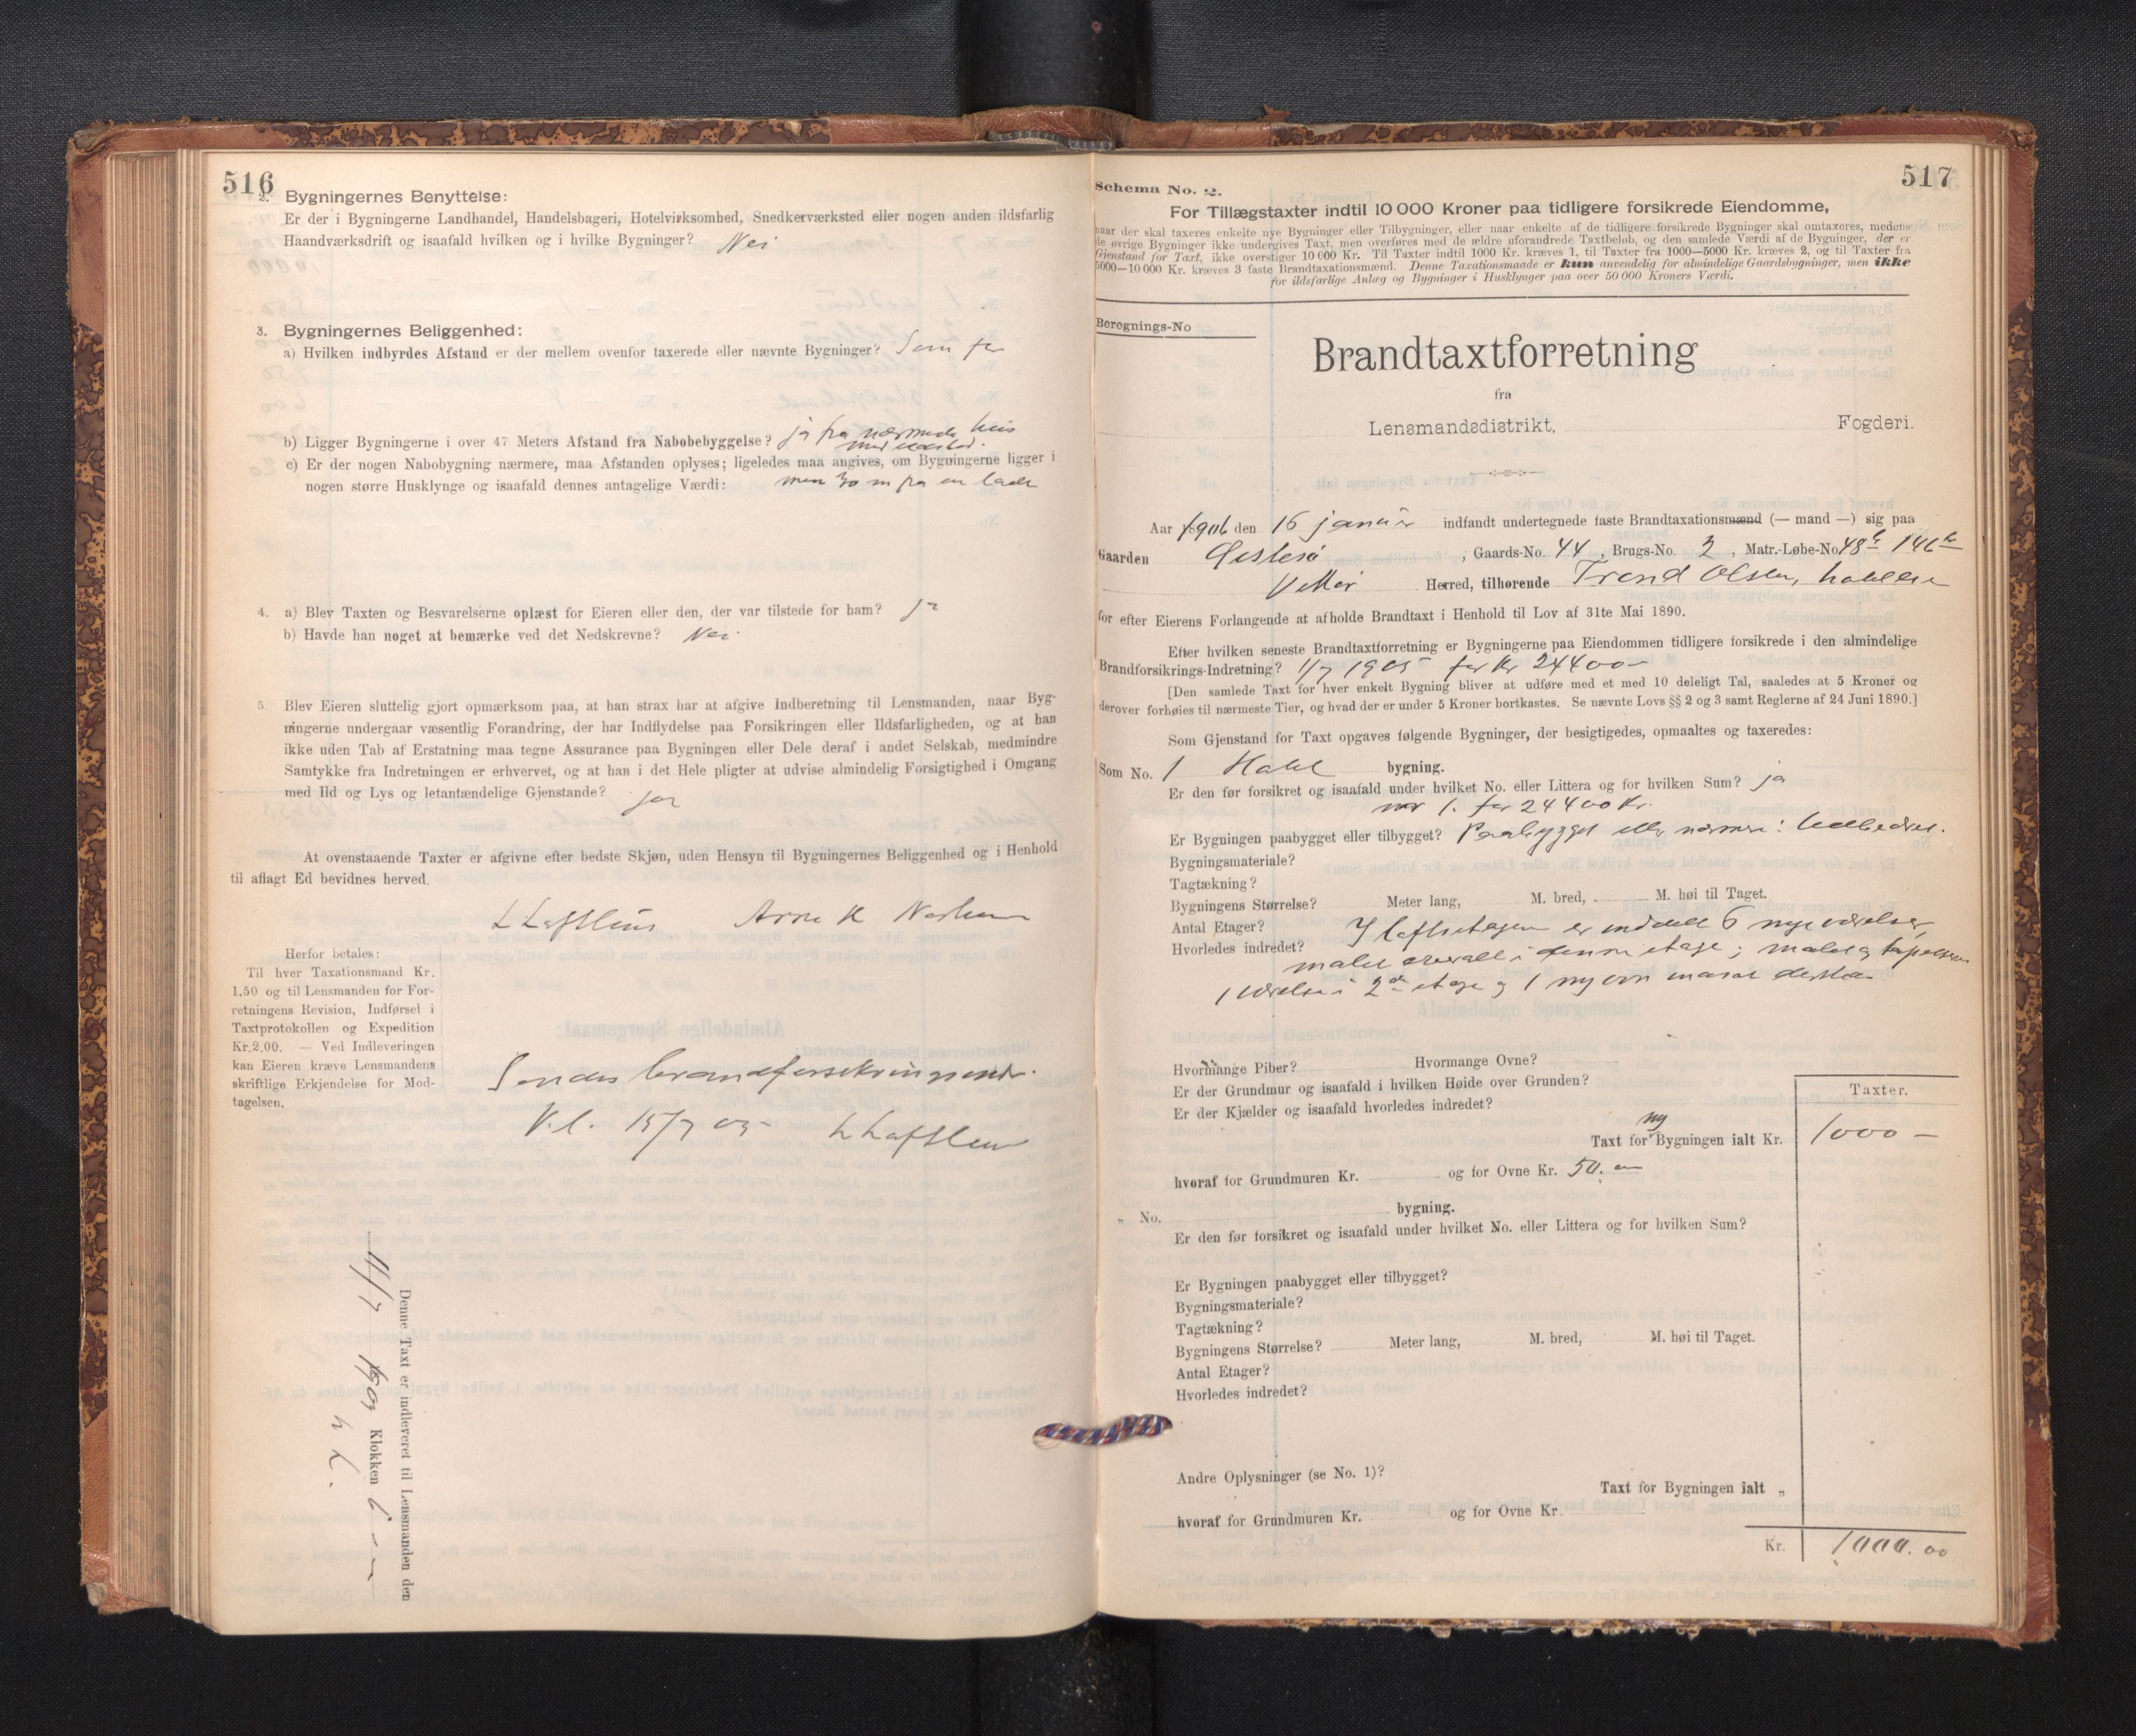 516
2. Bygningernes Benyttelse:
Er der i Bygningerne Landhandel, Handelsbageri, Hotelvirksomhed, Snedkerværksted eller nogen anden ildsfarlig
Haandværksdrift og isaafald hvilken og i hvilke Bygninger? Nei
3. Bygningernes Beliggenhed:
a) Hvilken indbyrdes Afstand er der mellem ovenfor taxerede eller nævnte Bygninger? Som før
b) Ligger Bygningerne i over 47 Meters Afstand fra Nabobebyggelse? ja fra nærmeste hus
med ildsted.
c) Er der nogen Nabobygning nærmere, maa Afstanden oplyses; ligeledes maa angives, om Bygningerne ligger i
nogen større Husklynge og isaafald dennes antagelige Værdi: men 30 m fra en lade
4. a) Blev Taxten og Besvarelserne oplæst for Eieren eller den, der var tilstede for ham? Ja
b) Havde han noget at bemærke ved det Nedskrevne? Nei
5. Blev Eieren sluttelig gjort opmærksom paa, at han strax har at afgive Indberetning til Lensmanden, naar Byg-
ningerne undergaar væsentlig Forandring, der har Indflydelse paa Forsikringen eller Ildsfarligheden, og at han
ikke uden Tab af Erstatning maa tegne Assurance paa Bygningen eller Dele deraf i andet Selskab, medmindre
Samtykke fra Indretningen er erhvervet, og at han i det Hele pligter at udvise almindelig Forsigtighed i Omgang
med Ild og Lys og letantændelige Gjenstande? ja
At ovenstaaende Taxter er afgivne efter bedste Skjøn, uden Hensyn til Bygningernes Beliggenhed og i Henhold
til aflagt Ed bevidnes herved.
L Lofthus Arne K
Herfor betales:
Til hver Taxationsmand Kr.
1.50 og til Lensmanden for For-
retningens Revision, Indførsel i
Taxtprotokollen og Expedition
Kr. 2.00. — Ved Indleveringen
kan Eieren kræve Lensmandens
skriftlige Erkjendelse for Mod-
tagelsen.
Sendes brandforsikringsindr.
V.l. 15/7 05 L Lofthus
Denne Taxt er indleveret til Lensmanden den
11/7 Klokken
517
Schema No. 2.
For Tillægstaxter indtil 10 000 Kroner paa tidligere forsikrede Eiendomme,
naar der skal taxeres enkelte nye Bygninger eller Tilbygninger, eller naar enkelte af de tidligere forsikrede Bygninger skal omtaxeres, medens
de øvrige Bygninger ikke undergives Taxt, men overføres med de ældre uforandrede Taxtbeløb, og den samlede Værdi af de Bygninger, der er
Gjenstand for Taxt, ikke overstiger 10 000 Kr. Til Taxter indtil 1000 Kr. kræves 1, til Taxter fra 1000—5000 Kr. kræves 2, og til Taxter fra
5000—10 000 Kr. kræves 3 faste Brandtaxationsmænd. Denne Taxationsmaade er kun anvendelig for almindelige Gaardsbygninger, men ikke
for ildsfarlige Anlæg og Bygninger i Husklynger paa over 50 000 Kroners Værdi.
Beregnings-No
Brandtaxtforretning
fra
Lensmandsdistrikt, Fogderi.
Aar 1906 den 16 januar indfandt undertegnede faste Brandtaxationsmænd (— mand —) sig paa
Gaarden , Gaards-No. 44, Brugs-No. 2, Matr.-Løbe-No 48 b 146
Herred, tilhørende Trond Olsen,
for efter Eierens Forlangende at afholde Brandtaxt i Henhold til Lov af 31te Mai 1890.
Efter hvilken seneste Brandtaxtforretning er Bygningerne paa Eiendommen tidligere forsikrede i den almindelige
Brandforsikrings-Indretning? 11/7 1905 for Kr 24400
[Den samlede Taxt for hver enkelt Bygning bliver at udføre med et med 10 deleligt Tal, saaledes at 5 Kroner og
derover forhøies til nærmeste Tier, og hvad der er under 5 Kroner bortkastes. Se nævnte Lovs §§ 2 og 3 samt Reglerne af 24 Juni 1890.]
Som Gjenstand for Taxt opgaves følgende Bygninger, der besigtigedes, opmaaltes og taxeredes:
Som No. 1 Hotel bygning.
Er den før forsikret og isaafald under hvilket No. eller Littera og for hvilken Sum? ja
nr 1. for 24400 Kr.
Er Bygningen paabygget eller tilbygget? Paabygget eller nærmere: Udbedret.
Bygningsmateriale?
Tagtækning?
Bygningens Størrelse? Meter lang, M. bred, M. høi til Taget.
Antal Etager? I loftsetagen er inddelt 6 nye værelser,
Hvorledes indredet? malet overalt i denne etage; malet og tapetseret
1 værelse i 2den etage og 1 ny ovn
Hvormange Piber? Hvormange Ovne?
Er der Grundmur og isaafald i hvilken Høide over Grunden?
Er der Kjælder og isaafald hvorledes indredet?
Taxter.
Taxt for ny Bygningen ialt Kr. 1000 —
hvoraf for Grundmuren Kr. og for Ovne Kr. 50.
„ No. bygning.
Er den før forsikret og isaafald under hvilket No. eller Littera og for hvilken Sum?
Er Bygningen paabygget eller tilbygget?
Bygningsmateriale?
Tagtækning?
Bygningens Størrelse? Meter lang, M. bred, M. høi til Taget.
Antal Etager?
Hvorledes indredet?
Andre Oplysninger (se No. 1)?
Taxt for Bygningen ialt „
hvoraf for Grundmuren Kr. og for Ovne Kr.
Kr. 1000.00